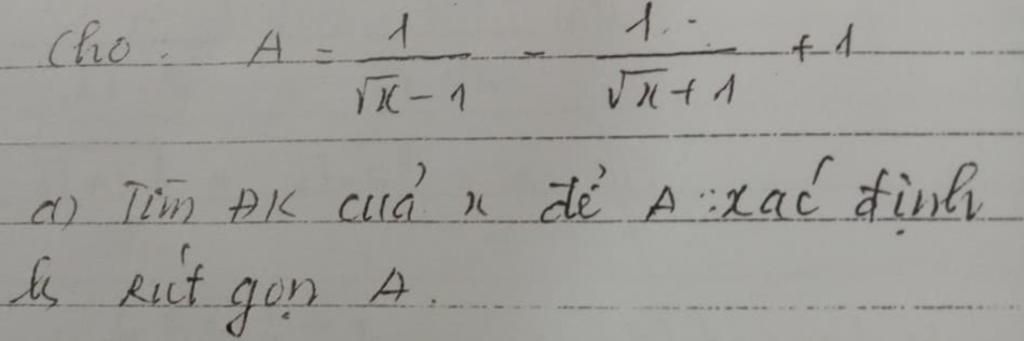 Cho: A = 1/(√x - 1) - 1/(√x + 1) + 1
a) Tìm ĐK của x để A xác định
b) Rút gọn A.